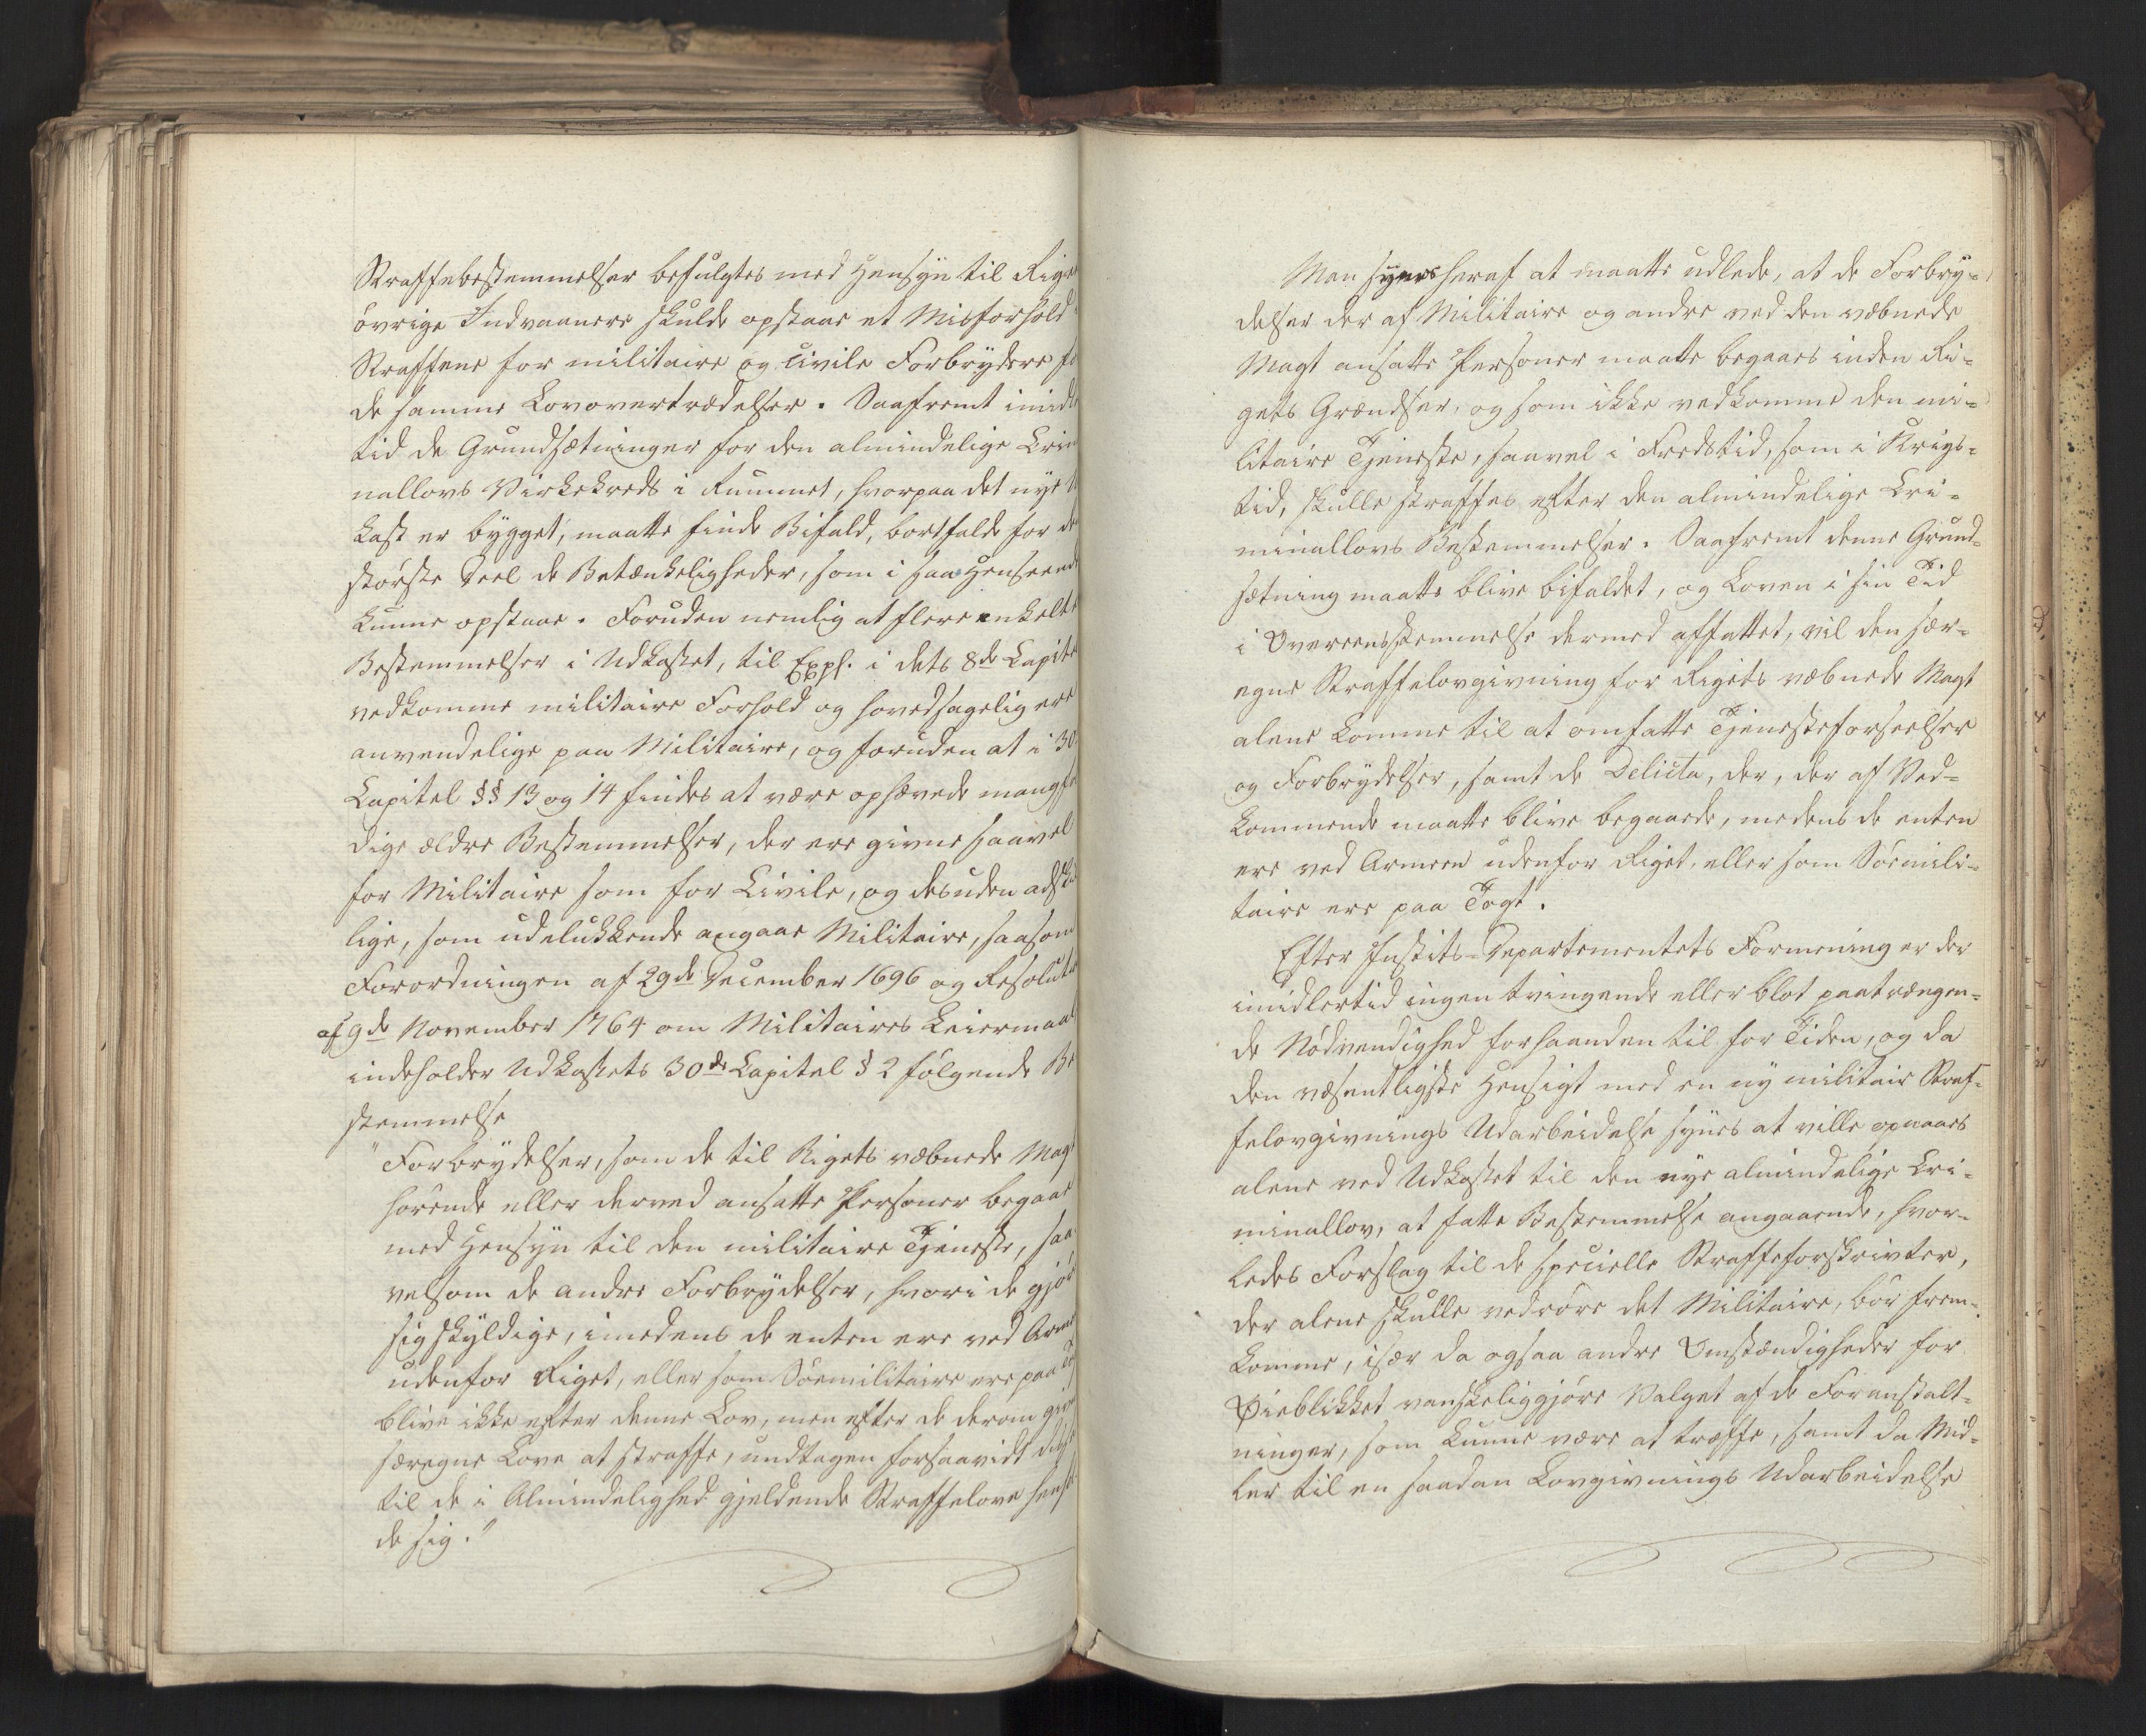 Straffebestemmelser befulgtes med Hensyn til Rige
övrige Indvaanere skulde opstaae et Misforhold
Straffene for militaire og civile Forbrydere fo
de samme Lovovertrædelser. Saafremt imidle
tid de Grundsætninger for den almindelige Crim
nallovs Virkekreds i Rummet, hvorpaa det nye U
kast er bygget, maatte finde Bifald, bortfalde for de
störste Deel de Betænkeligheder, som i saa Henseende
kunne opstaae. Foruden nemlig at flere enkelte
Bestemmelser i Udkastet, til Expl. i dets 8de Capite
vedkomme militaire Forhold og hovedsagelig ere
anvendelige paa Militaire, og foruden at i 30
Capitel §§ 13 og 14 findes at være ophævede mangfol
dige ældre Bestemmelser, der ere givne saavel
for Militaire som for Civile, og desuden adskil
lige, som udelukkende angaae Militaire, saasom
Forordningen af 29de December 1696 og Resoluti
af 9de November 1764 om Militaires Leiermaal
indeholder Udkastets 30de Capitel § 2 fölgende Be
stemmelse
"Forbrydelser, som de til Rigets væbnede Mag
hörende eller derved ansatte Personer begaae
med Hensyn til den militaire Tjeneste, saa
velsom de andre Forbrydelser, hvori de gjör
sig skyldige, imedens de enten ere ved Arme
udenfor Riget, eller som Söemilitaire ere paa To
blive ikke efter denne Lov, men efter de derom giv
særegne Love at straffe, undtagen forsaavidt disse
til de i Almindelighed gjeldende Straffelove henh
de sig."
Man synes heraf at maatte udlede, at de Forbry-
delser der af Militaire og andre ved den væbnede
Magt ansatte Personer maatte begaaes inden Ri-
gets Grændser, og som ikke vedkomme den mi-
litaire Tjeneste, saavel i Fredstid, som i Krigs-
tid, skulle straffes efter den almindelige Cri-
minallovs Bestemmelser. Saafremt denne Grund-
sætning maatte blive bifaldet, og Loven i sin Tid
i Overeensstemmelse dermed affattet, vil den sær-
egne Straffelovgivning for Rigets væbnede Magt
alene komme til at omfatte Tjenesteforseelser
og Forbrydelser, samt de Delicta, der, der af Ved-
kommende maatte blive begaaede, medens de enten
ere ved Armeen udenfor Riget, eller som Söemili-
taire ere paa Togt.
Efter Justits-Departementets Formening er der
imidlertid ingen tvingende eller blot paatrængen-
de Nödvendighed forhaanden til for Tiden, og da
den væsentligste Hensigt med en ny militair Straf-
felovgivnings Udarbeidelse synes at ville opnaaes
alene ved Udkastet til den nye almindelige Cri-
minallov, at fatte Bestemmelse angaaende, hvor-
ledes Forslag til de specielle Straffeforskrivter,
der alene skulle vedröre det Militaire, bör frem-
komme, især da ogsaa andre Omstændigheder for
Öieblikket vanskeliggjöre Valget af de Foranstalt-
ninger, som kunne være at træffe, samt da Mid-
ler til en saadan Lovgivnings Udarbeidelse